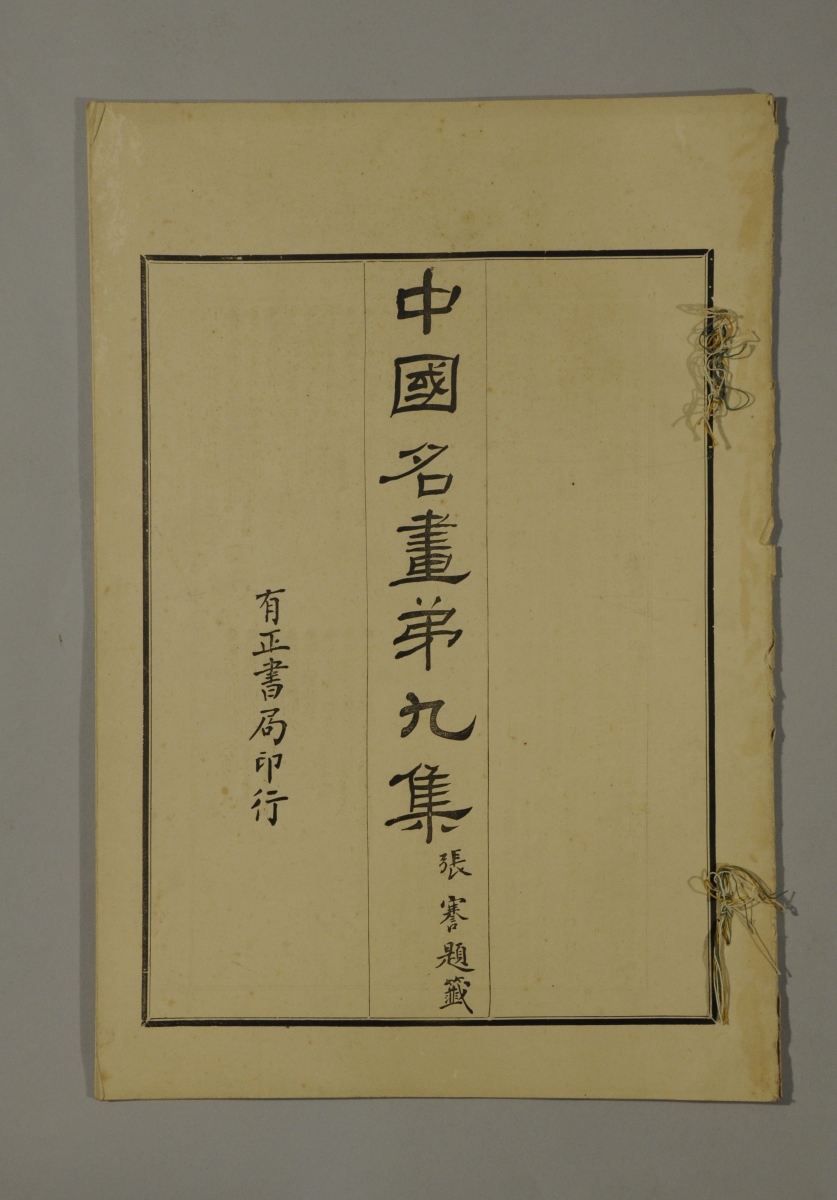 中國名畫弟九集
張謇題籤
有正書局印行